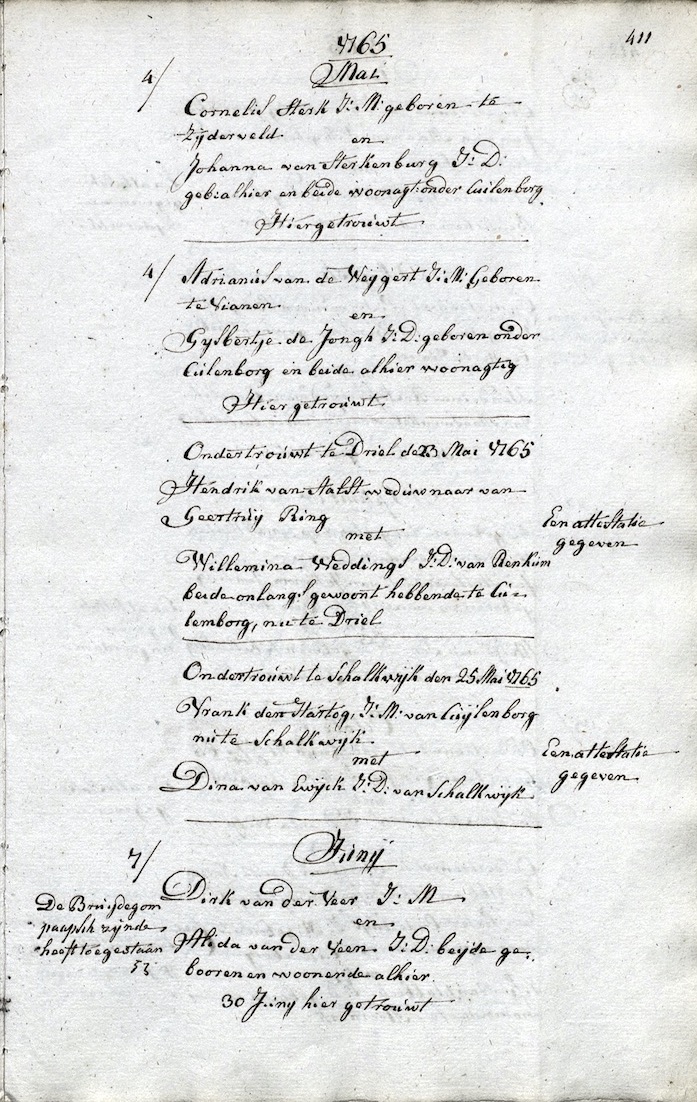 411
1765
Mai
4/
Cornelis Sterk J: M: geboren te
Zijderveld
en
Johanna van Sterkenburg J: D:
geb: alhier en beide woonagt: onder Cuilenborg
Hier getrouwt
4/
Adrianus van de Weygert J: M: Geboren
te Vianen
en
Gysbertje de Jongh J: D: geboren onder
Cuilenborg en beide alhier woonagtig
Hier getrouwt
Ondertrouwt te Driel de 23 Mai 1765
Hendrik van Aalst weduwnaar van
Geertruy Ring
met
Willemina Weddings J: D: van Renkum
beide onlangs gewoont hebbende te Cu-
lemborg, nu te Driel
Een attestatie
gegeven
Ondertrouwt te Schalkwijk den 25 Mai 1765
Vrank den Hartog, J: M: van Cuijlenborg
nu te Schalkwijk
met
Dina van Ewijck J: D: van Schalkwijk
Een attestatie
gegeven
Junij
7/
Dirk van der Veer J: M
en
Alida van der Veen J: D: beijde ge-
booren en woonende alhier.
30 Juny hier getrouwt
De Bruijdegom
paapsch zijnde
heeft toegestaan